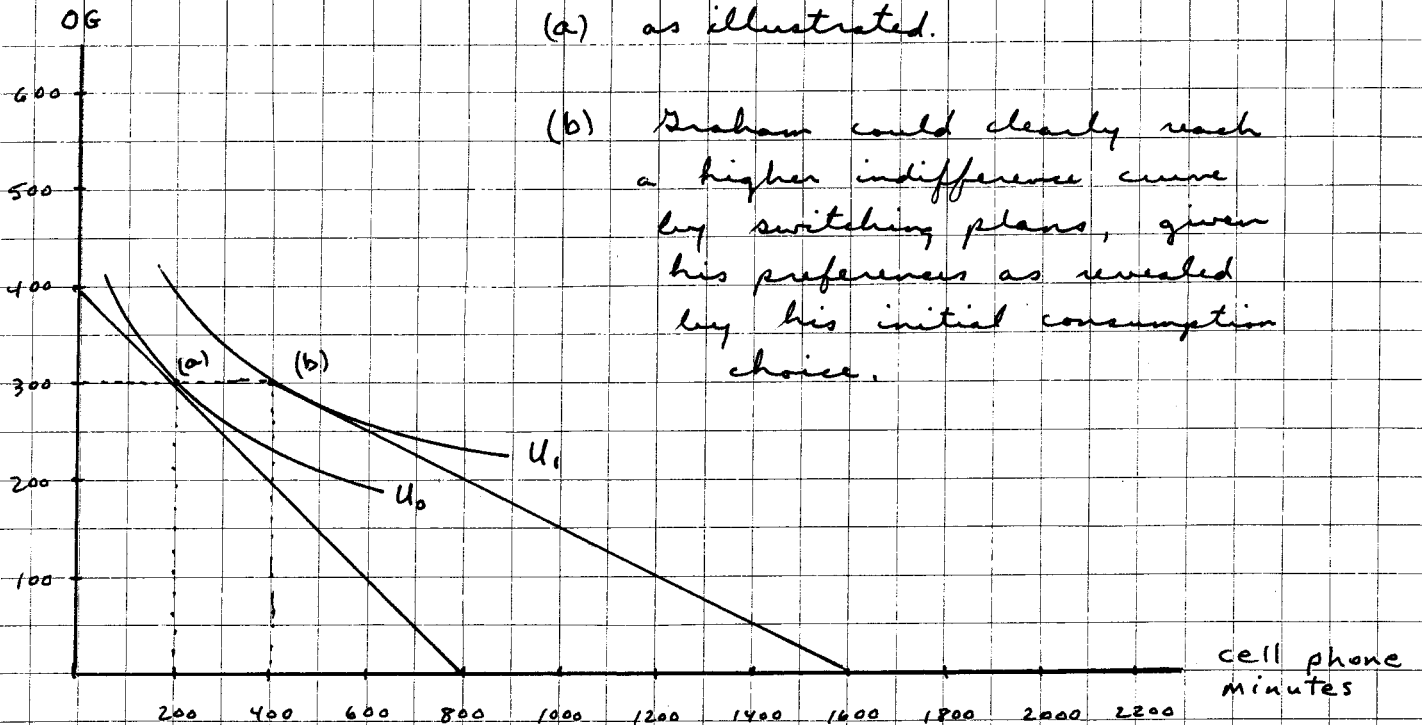 OG
(a) as illustrated.
600
(b) Graham could clearly reach
500
a higher indifference curve
by switching plans, given
his preferences as revealed
400
by his initial consumption
(a)
(b)
choice.
300
U1
200
U0
100
cell phone
minutes
200 400 600 800 1000 1200 1400 1600 1800 2000 2200